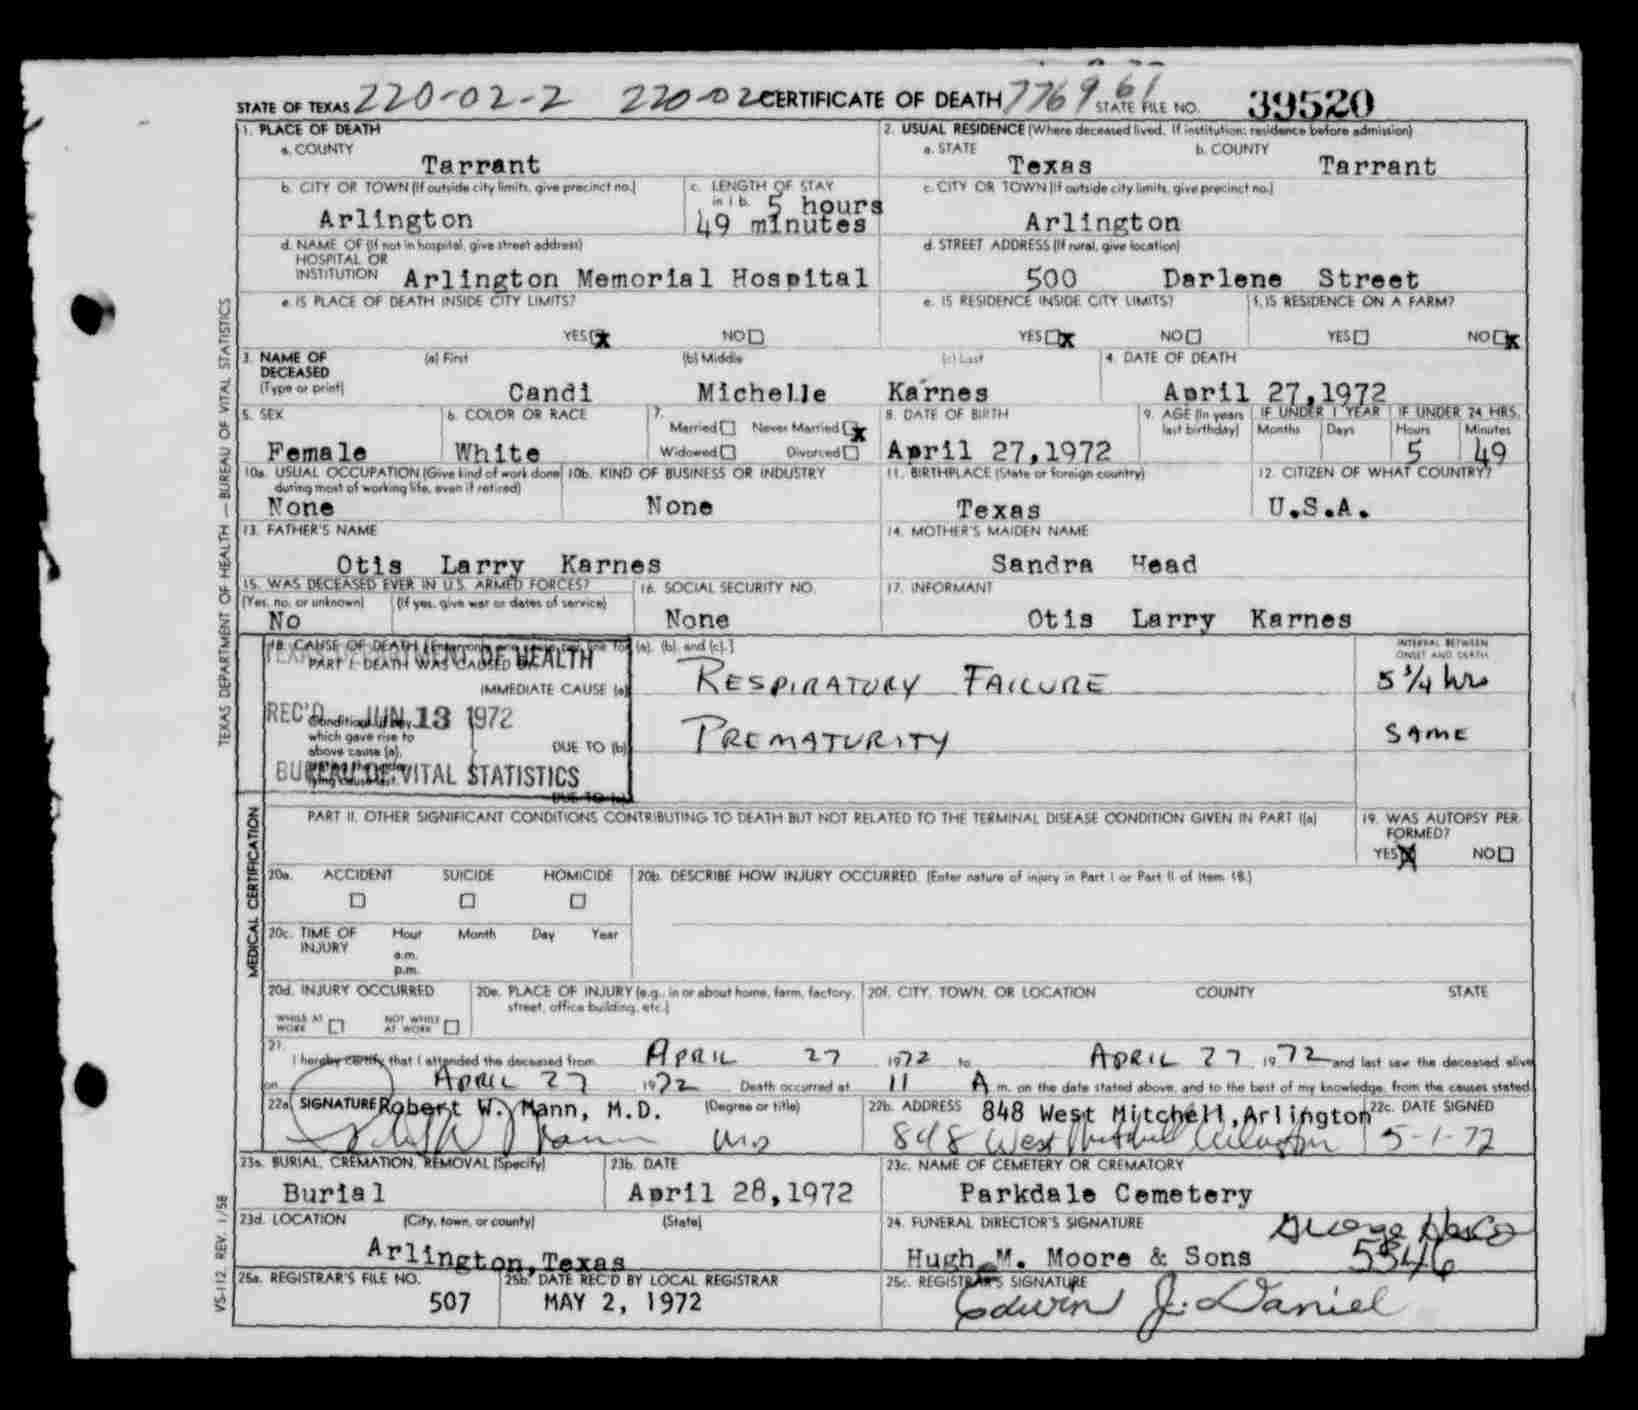 STATE OF TEXAS 220-02-2 220-02 CERTIFICATE OF DEATH 776961 STATE FILE NO. 39520
1. PLACE OF DEATH
a. COUNTY
Tarrant
2. USUAL RESIDENCE (Where deceased lived. If institution: residence before admission)
a. STATE b. COUNTY
Texas Tarrant
b. CITY OR TOWN (If outside city limits, give precinct no.)
Arlington
c. LENGTH OF STAY
in 1 b. 5 hours
49 minutes
c. CITY OR TOWN (If outside city limits, give precinct no.)
Arlington
d. NAME OF (If not in hospital, give street address)
HOSPITAL OR
INSTITUTION Arlington Memorial Hospital
d. STREET ADDRESS (If rural, give location)
500 Darlene Street
e. IS PLACE OF DEATH INSIDE CITY LIMITS?
YES x NO
e. IS RESIDENCE INSIDE CITY LIMITS?
YES x NO
f. IS RESIDENCE ON A FARM?
YES NO x
3. NAME OF
DECEASED
(Type or print)
(a) First (b) Middle (c) Last
Candi Michelle Karnes
4. DATE OF DEATH
April 27,1972
5. SEX
Female
6. COLOR OR RACE
White
7.
Married Never Married x
Widowed Divorced
8. DATE OF BIRTH
April 27,1972
9. AGE (In years
last birthday)
IF UNDER 1 YEAR
Months Days
IF UNDER 24 HRS.
Hours Minutes
5 49
10a. USUAL OCCUPATION (Give kind of work done
during most of working life, even if retired)
None
10b. KIND OF BUSINESS OR INDUSTRY
None
11. BIRTHPLACE (State or foreign country)
Texas
12. CITIZEN OF WHAT COUNTRY?
U.S.A.
13. FATHER'S NAME
Otis Larry Karnes
14. MOTHER'S MAIDEN NAME
Sandra Head
15. WAS DECEASED EVER IN U.S. ARMED FORCES?
(Yes, no, or unknown) (If yes, give war or dates of service)
No
16. SOCIAL SECURITY NO.
None
17. INFORMANT
Otis Larry Karnes
18. CAUSE OF DEATH (a), (b), and (c).]
TEXAS DEPARTMENT OF HEALTH
PART I. DEATH WAS CAUSED
IMMEDIATE CAUSE (a)
RESPIRATORY FAILURE
INTERVAL BETWEEN
ONSET AND DEATH
5 3/4 hrs
REC'D JUN 13 1972
which gave rise to
above cause (a),
DUE TO (b)
PREMATURITY
SAME
BUREAU OF VITAL STATISTICS
DUE TO (c)
PART II. OTHER SIGNIFICANT CONDITIONS CONTRIBUTING TO DEATH BUT NOT RELATED TO THE TERMINAL DISEASE CONDITION GIVEN IN PART I(a)
19. WAS AUTOPSY PER-
FORMED?
YES X NO
20a. ACCIDENT SUICIDE HOMICIDE
20b. DESCRIBE HOW INJURY OCCURRED. (Enter nature of injury in Part I or Part II of item 18.)
20c. TIME OF
INJURY
Hour Month Day Year
a.m.
p.m.
20d. INJURY OCCURRED
WHILE AT
WORK
NOT WHILE
AT WORK
20e. PLACE OF INJURY (e.g., in or about home, farm, factory,
street, office building, etc.)
20f. CITY, TOWN, OR LOCATION COUNTY STATE
21.
I hereby certify that I attended the deceased from APRIL 27 1972 to APRIL 27 1972 and last saw the deceased alive
on APRIL 27 1972 Death occurred at 11 A m. on the date stated above, and to the best of my knowledge, from the causes stated.
22a. SIGNATURE Robert W. Mann, M.D. (Degree or title)
Robert W Mann MD
22b. ADDRESS 848 West Mitchell,Arlington
848 West Mitchell Arlington
22c. DATE SIGNED
5-1-72
23a. BURIAL, CREMATION, REMOVAL (Specify)
Burial
23b. DATE
April 28,1972
23c. NAME OF CEMETERY OR CREMATORY
Parkdale Cemetery
23d. LOCATION (City, town, or county) (State)
Arlington,Texas
24. FUNERAL DIRECTOR'S SIGNATURE
George
Hugh M. Moore & Sons 5346
25a. REGISTRAR'S FILE NO.
507
25b. DATE REC'D BY LOCAL REGISTRAR
MAY 2, 1972
25c. REGISTRAR'S SIGNATURE
Edwin J. Daniel
TEXAS DEPARTMENT OF HEALTH — BUREAU OF VITAL STATISTICS
MEDICAL CERTIFICATION
VS-112 REV. 1/58